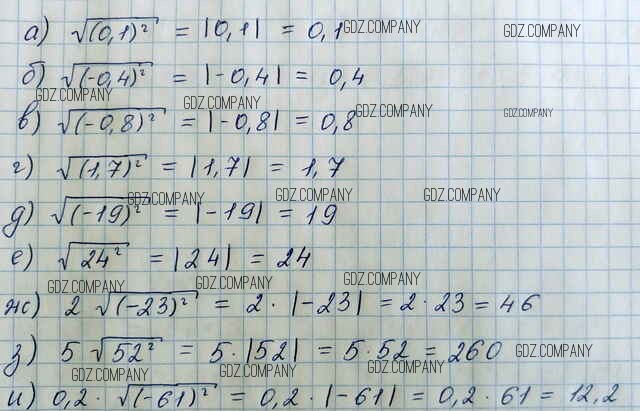 а) √(0,1)² = |0,1| = 0,1 GDZ.COMPANY GDZ.COMPANY
б) √(-0,4)² = |-0,4| = 0,4
GDZ.COMPANY GDZ.COMPANY
в) √(-0,8)² = |-0,8| = 0,8 GDZ.COMPANY GDZ.COMPANY
г) √(1,7)² = |1,7| = 1,7
GDZ.COMPANY GDZ.COMPANY GDZ.COMPANY
д) √(-19)² = |-19| = 19
е) √24² = |24| = 24
GDZ.COMPANY GDZ.COMPANY GDZ.COMPANY
ж) 2 √(-23)² = 2 · |-23| = 2 · 23 = 46
з) 5 √52² = 5 · |52| = 5 · 52 = 260 GDZ.COMPANY
GDZ.COMPANY GDZ.COMPANY GDZ.COMPANY
и) 0,2 · √(-61)² = 0,2 · |-61| = 0,2 · 61 = 12,2